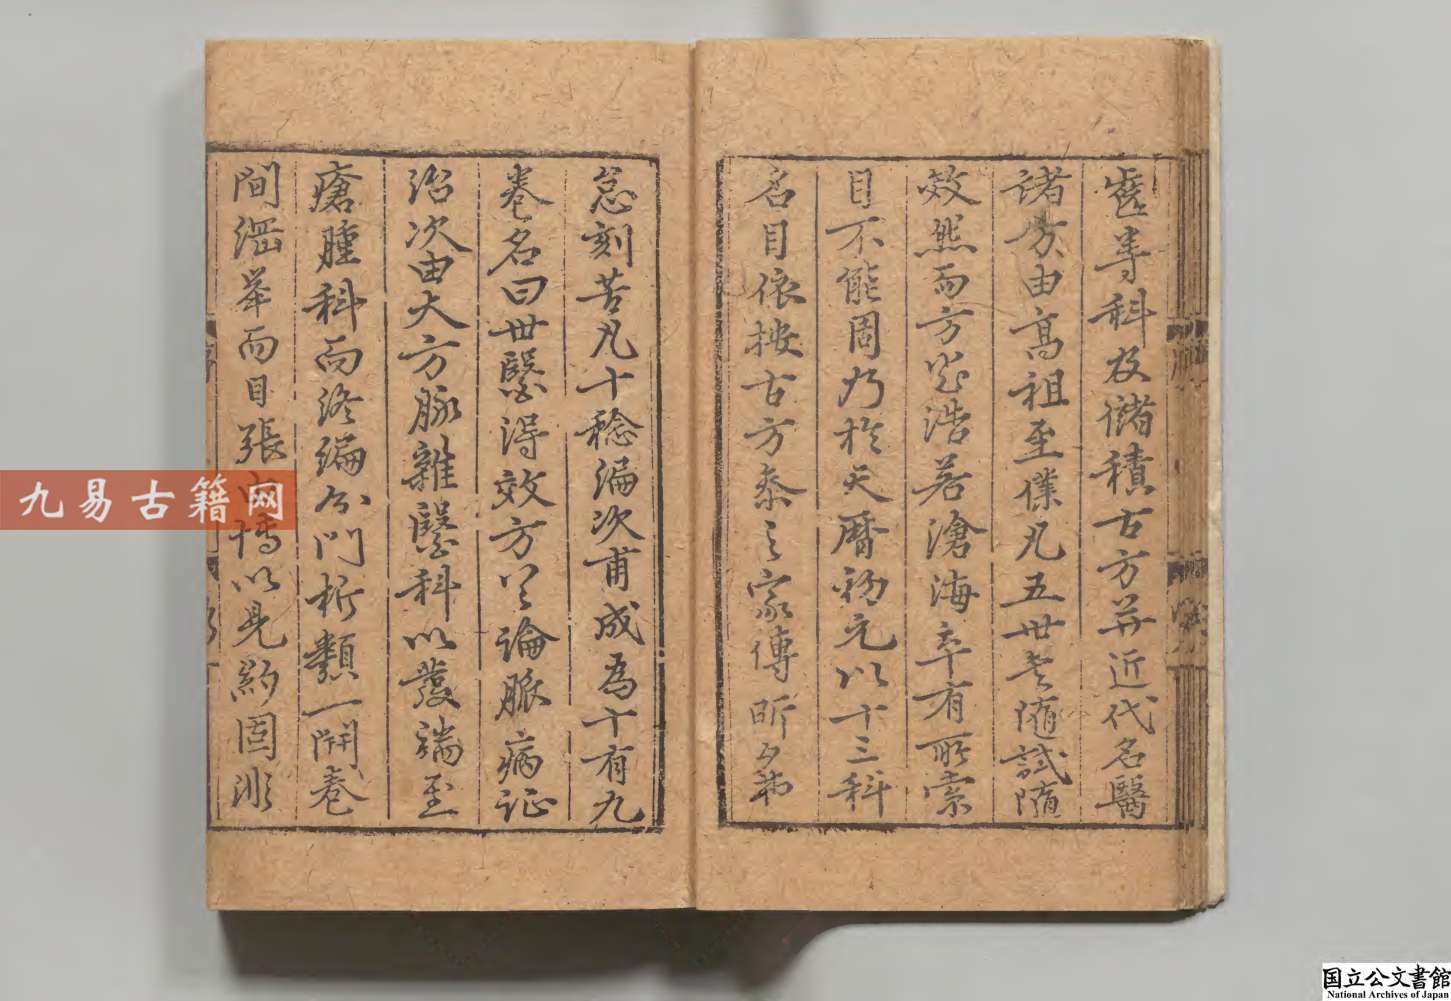 齒等科及儲積古方并近代名醫
諸方由高祖至僕凡五世矣隨試隨
效然而方浩若滄海卒有所索
目不能周乃於天曆初元以十三科
名目依按古方參之家傳昕夕弗
怠刻苦凡十稔編次甫成為十有九
卷名曰世醫得效方首論脉病證
治次由大方脉雜醫科以發端至
瘡腫科而終編分門析類一開卷
間綱舉而目張由博以見約固非
九易古籍网
国立公文書館
National Archives of Japan